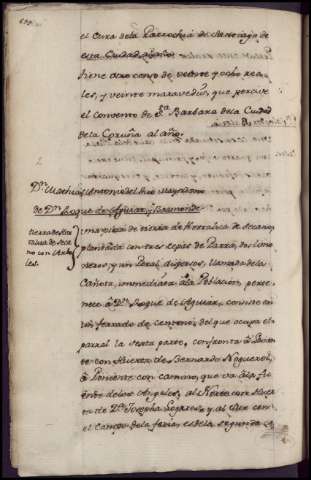 el Cura de la Parrochia de Santiago de
esta Ciudad al año
tiene otro censo de veinte y ocho rea
les, y veinte maravedis, que percive
el convento de Sta Barbara de la Ciudad
de la Coruña al año.
Dn Mathias Antonio del Mayordomo
de Dn Roque de Aguiar y Baamonde
tierra de Ortaliza de secano con Arboles
una pieza de tierra de Hortaliza de secano,
plantada con tres zepas de Parra, dos limo
neros, y un Peral, dispersos, llamada de la
Cañota, immediata à la Poblacion, perte
nece à Dn Roque de Aguiar, consiste en
un ferrado de centeno, del que ocupa el
parral la sexta parte, confronta à Levan
te con Huerta de Bernardo Noguerol,
à Poniente con camino, que va à la fu
ente de los Angeles, al Norte con Huer
ta de Dn Josepha Logares, y al Sur con
el campo de la feria, es de la segunda c